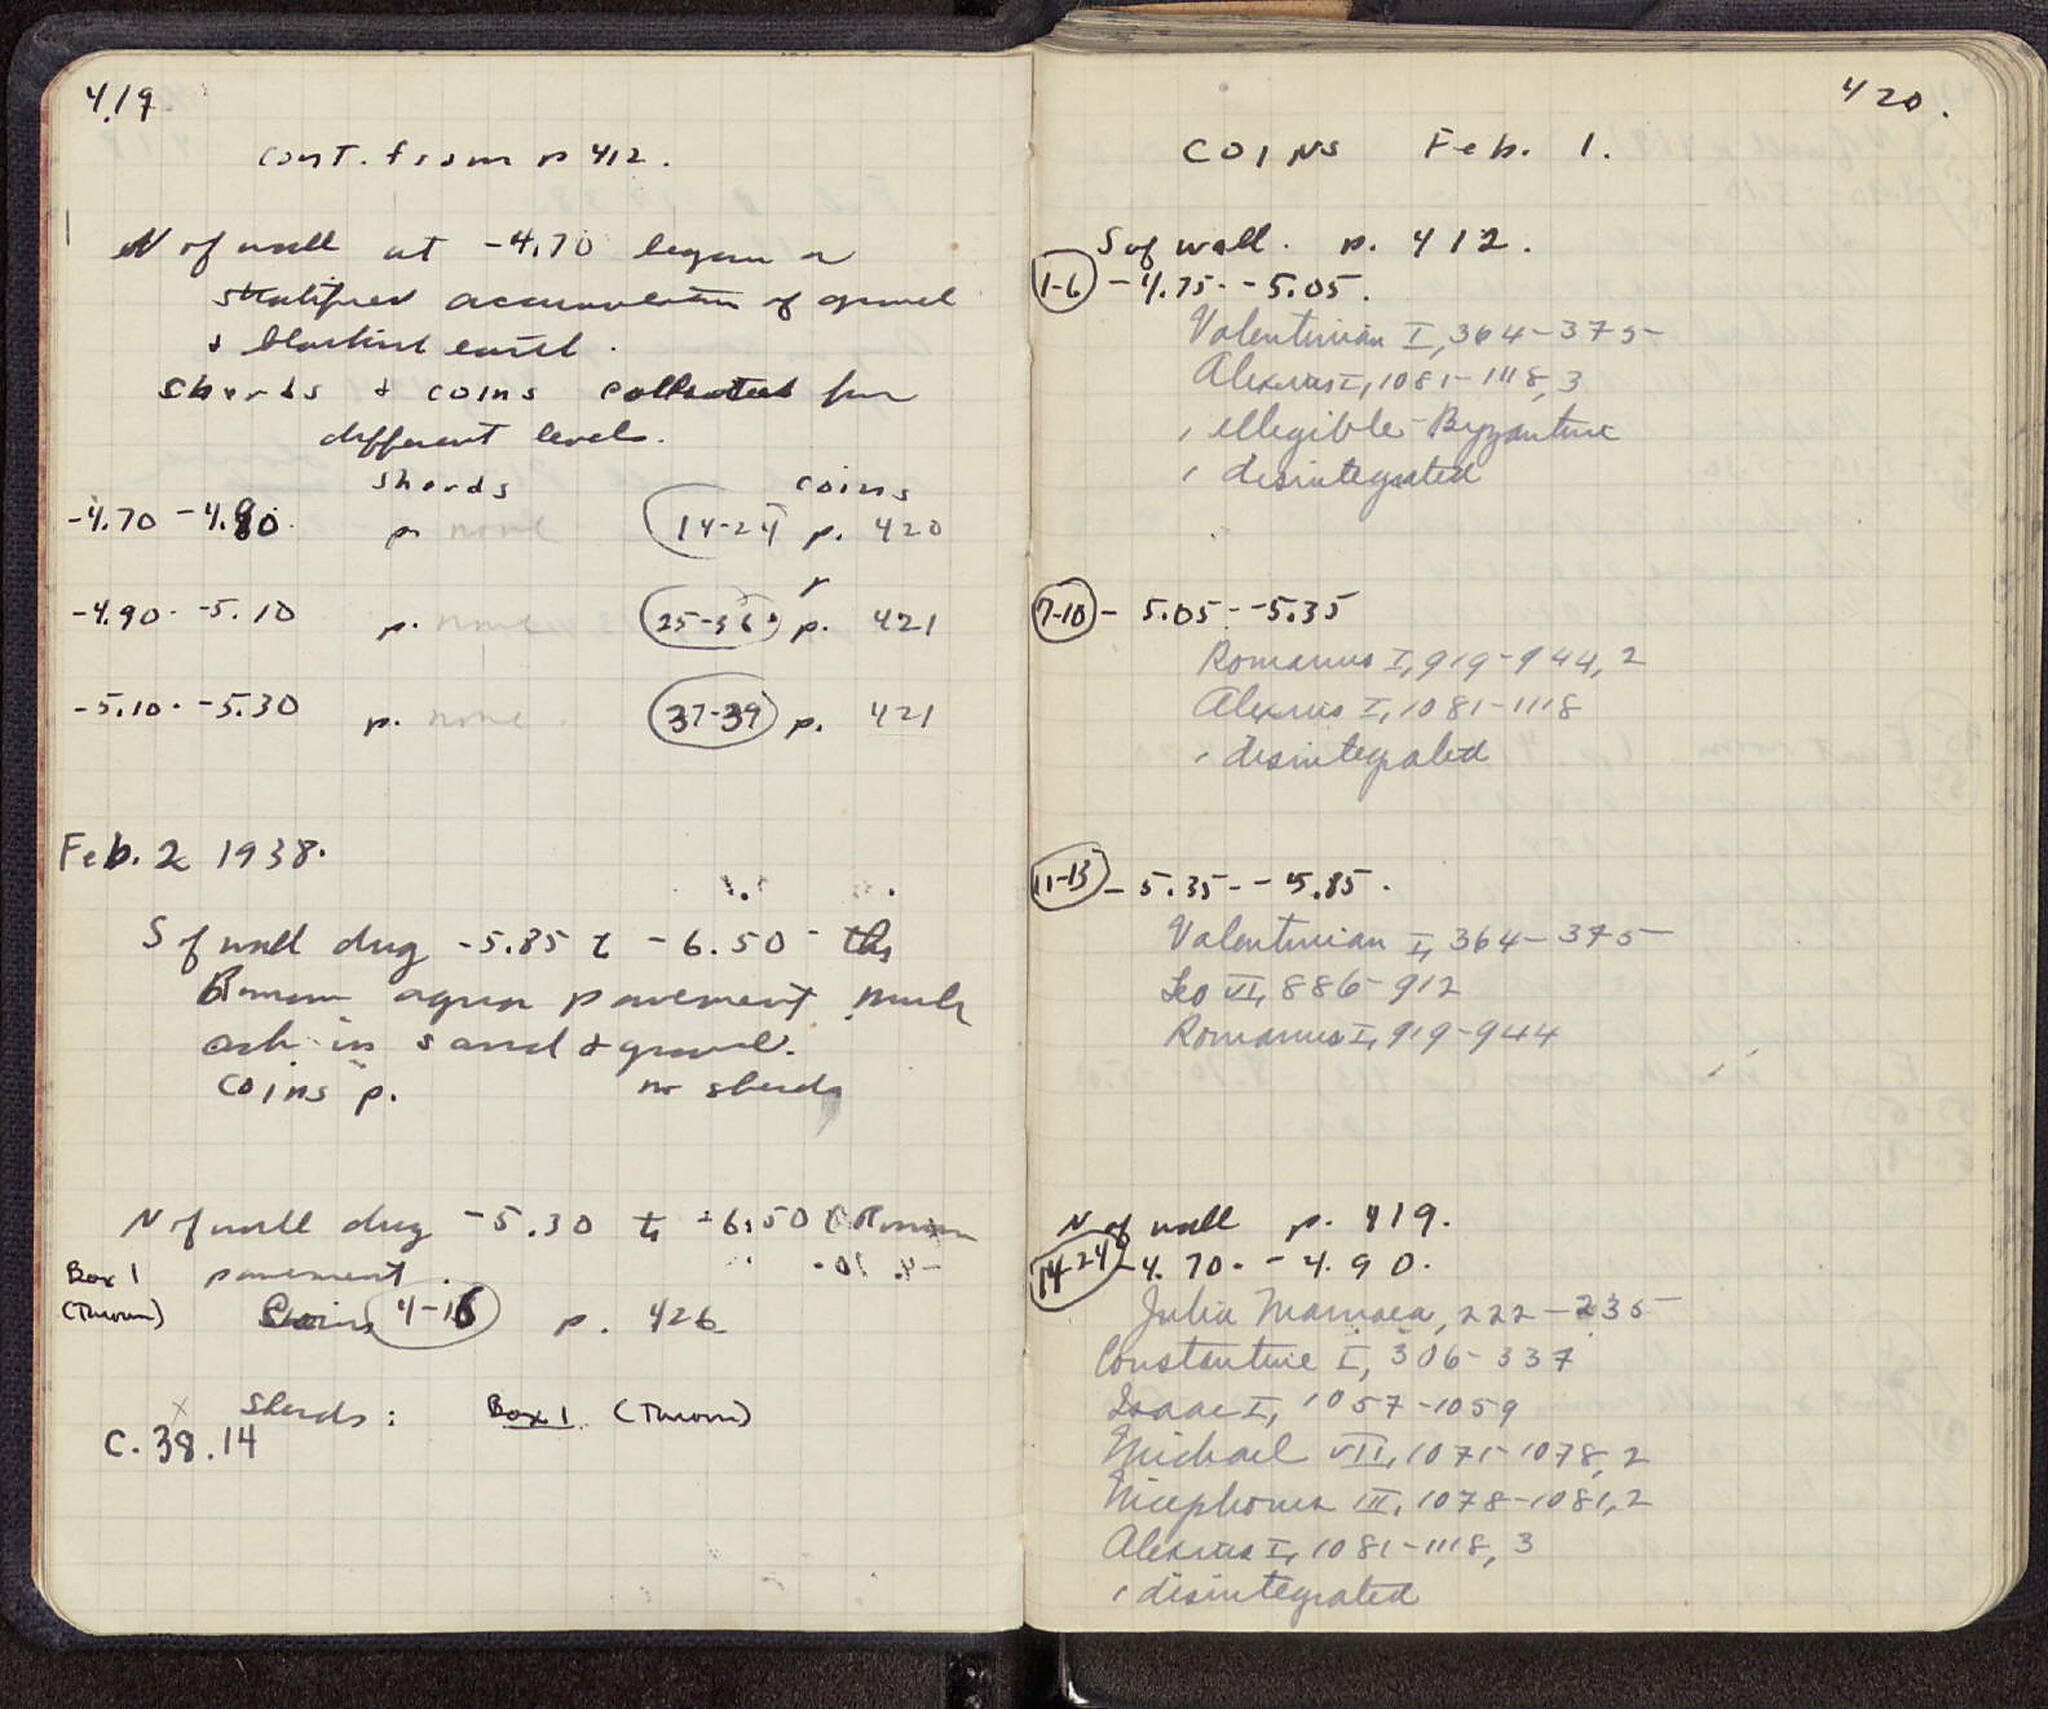 419
cont. from p 412.
N of wall at -4.70 began a
stratified accumulation of gravel
& blackish earth.
sherds & coins collected for
different levels.
sherds coins
-4.70 -4.90. p. none 14-24 p. 420
-4.90. -5.10 p. none 25-36. p. 421
-5.10. -5.30 p. none 37-39 p. 421
Feb. 2 1938.
S of wall dug -5.85 to -6.50 - the
Roman agora pavement much
ash in sand & gravel.
coins p. no sherds
N of wall dug -5.30 to -6.50 Roman
Box 1 pavement.
(Thrown) Coins 4-16 p. 426
sherds: Box 1 (Thrown)
C. 38.14
420.
COINS Feb. 1.
S of wall. p. 412.
1-6 -4.75. -5.05.
Valentinian I, 364-375
Alexius I, 1081-1118, 3
1 illegible-Byzantine
1 disintegrated
7-10 - 5.05 - -5.35
Romanus I, 919-944, 2
Alexius I, 1081-1118
1 disintegrated
11-13 - 5.35 - -5.85.
Valentinian I, 364-375
Leo VI, 886-912
Romanus I, 919-944
N of wall p. 419.
14-24 -4.70. -4.90.
Julia Mamaea, 222-235
Constantine I, 306-337
Isaac I, 1057-1059
Michael VII, 1071-1078, 2
Nicephorus III, 1078-1081, 2
Alexius I, 1081-1118, 3
1 disintegrated